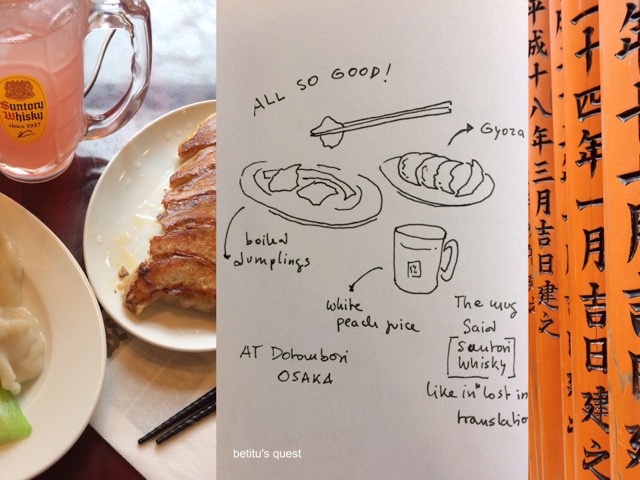 Suntory
Whisky
since 1937
ALL SO GOOD!
Gyoza
boiled
dumplings
white
peach juice
The mug
Said
Suntori
Whisky
like in "lost in
translatio
AT Dotombori
OSAKA
betitu's quest
平成十八年三月吉日建之
十四年一月吉日建之